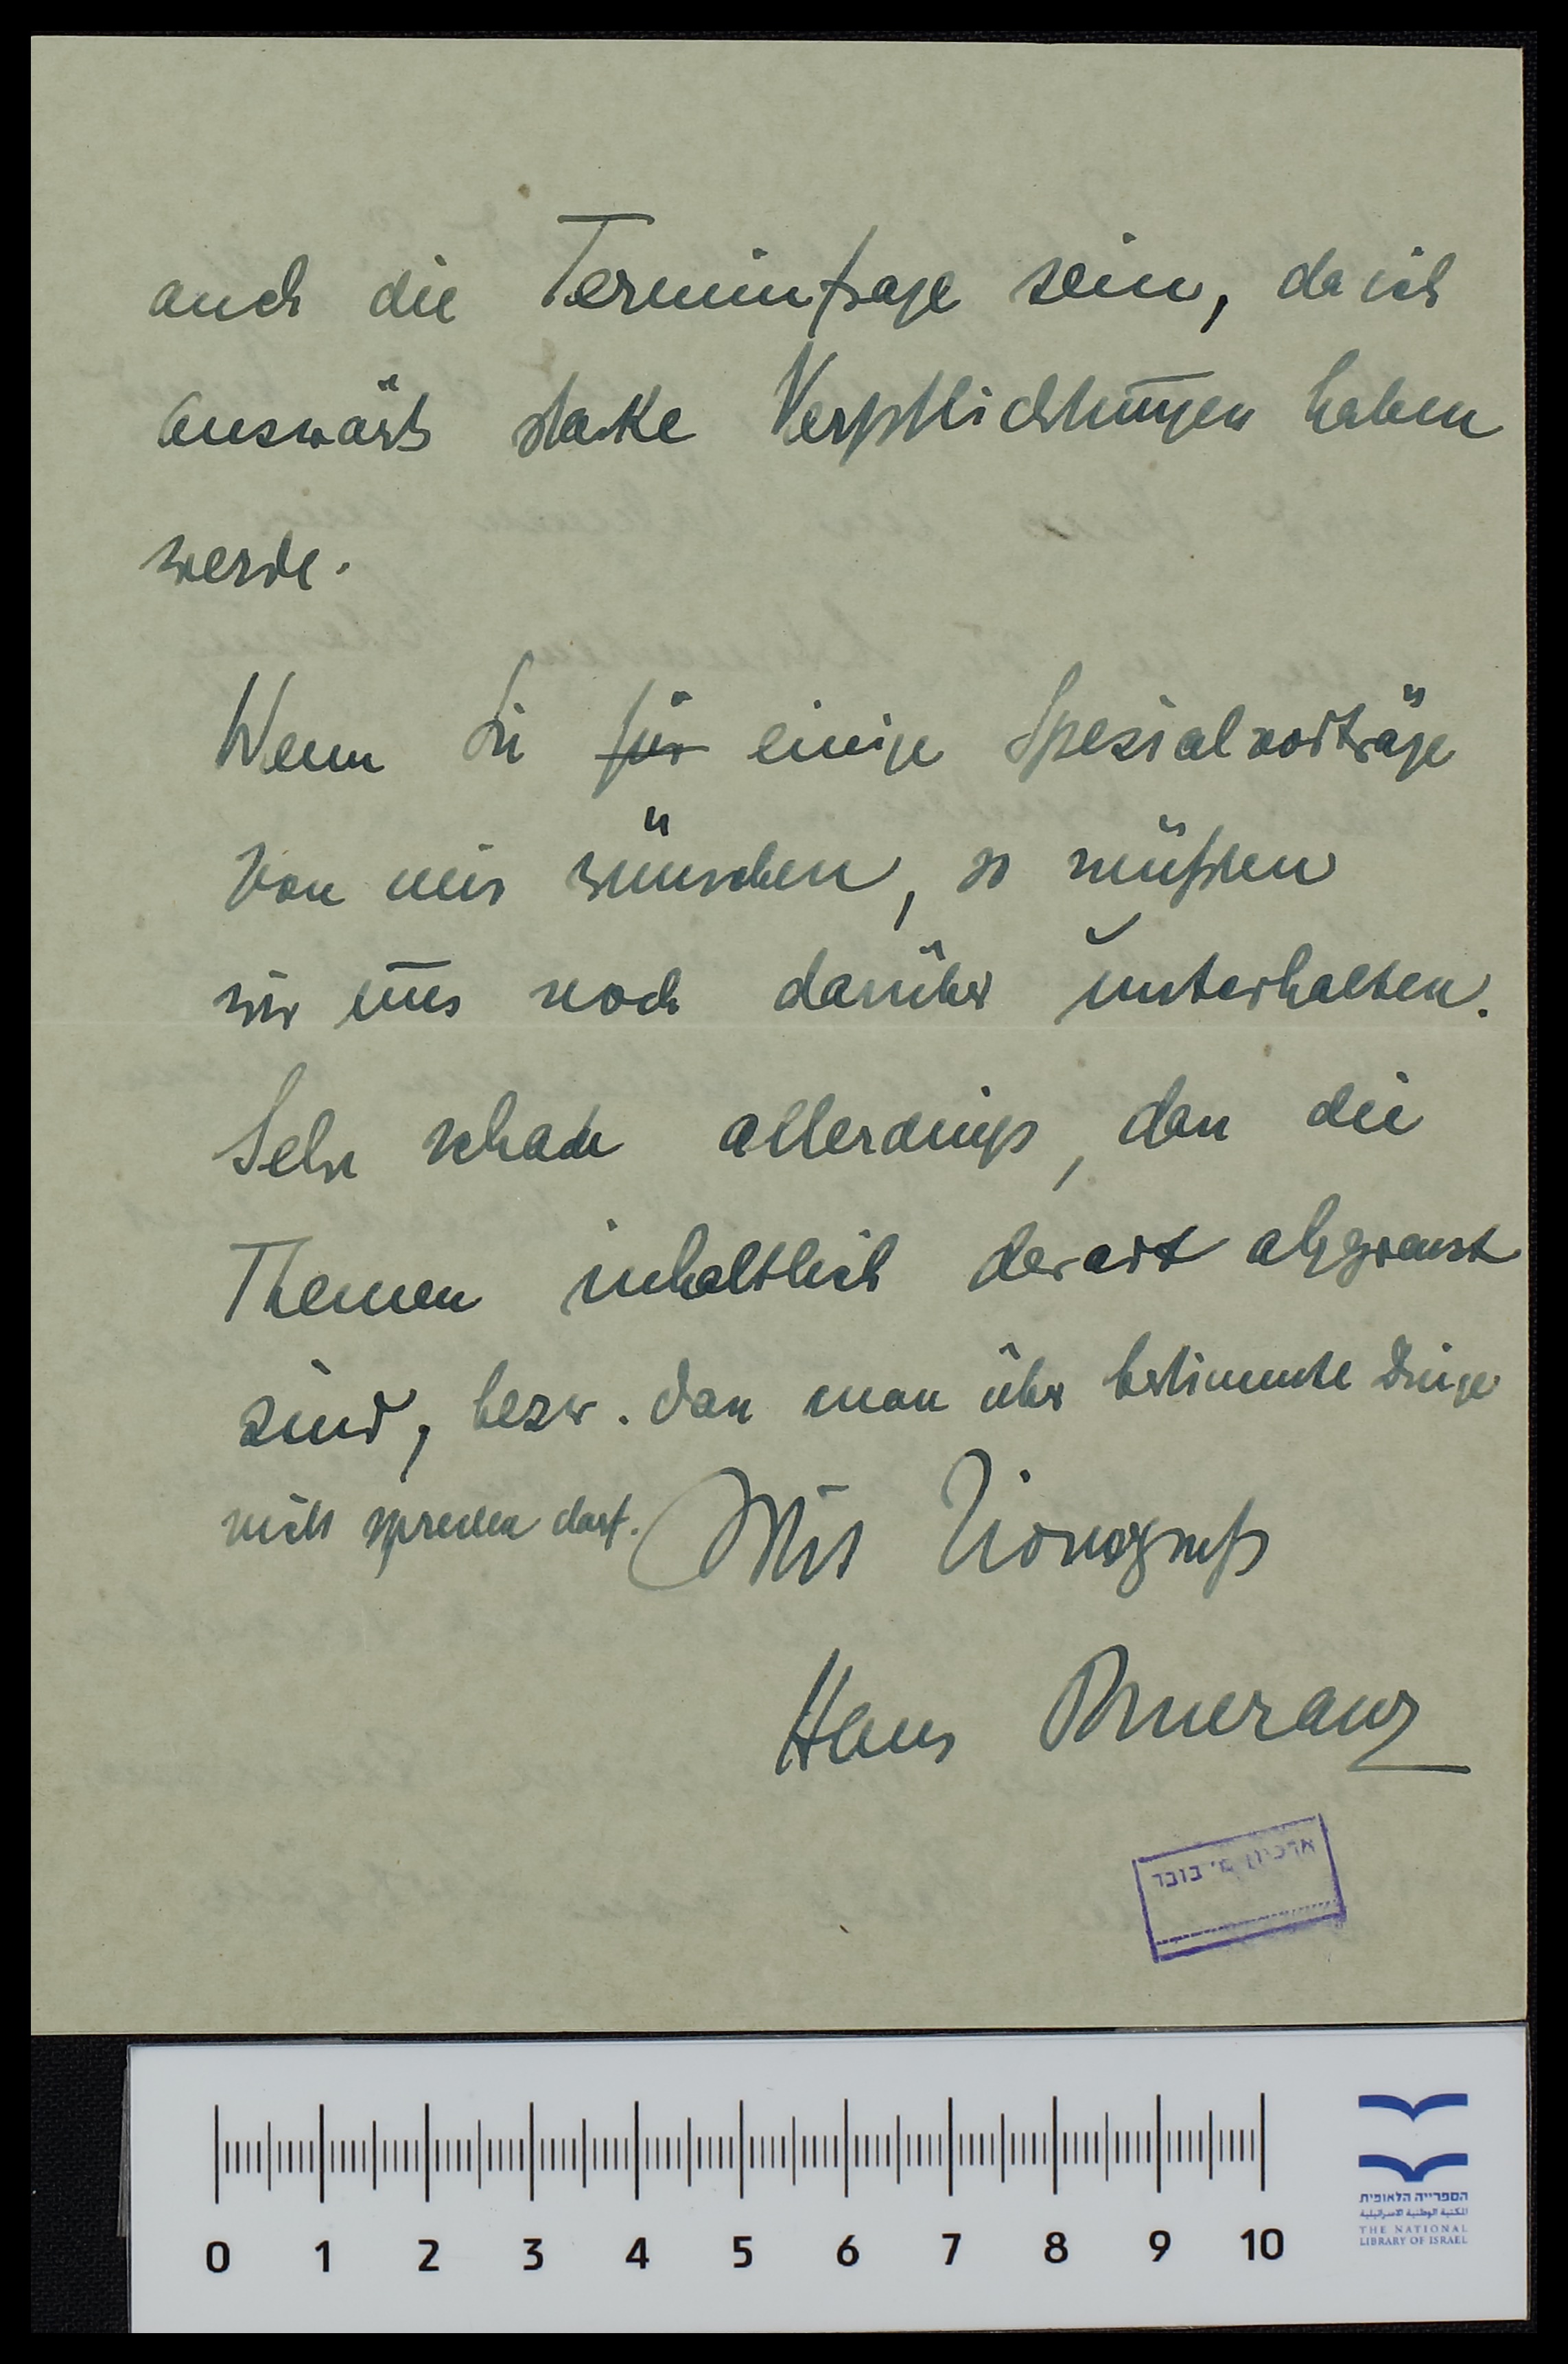 auch die Terminfrage sein, da ich
auswärts starke Verpflichtungen haben
werde.
Wenn Sie für einige Spezialvorträge
von mir wünschen, so müßten
wir uns noch darüber unterhalten.
Sehr schade allerdings, dass die
Themen inhaltlich derart abgegrenzt
sind, bezw. dass man über bestimmte Dinge
nicht sprechen darf. Mit Zionsgruß
Hans Pomeranz
ארכיון מ' בובר
0 1 2 3 4 5 6 7 8 9 10
הספרייה הלאומית
المكتبة الوطنية الاسرائيلية
THE NATIONAL
LIBRARY OF ISRAEL